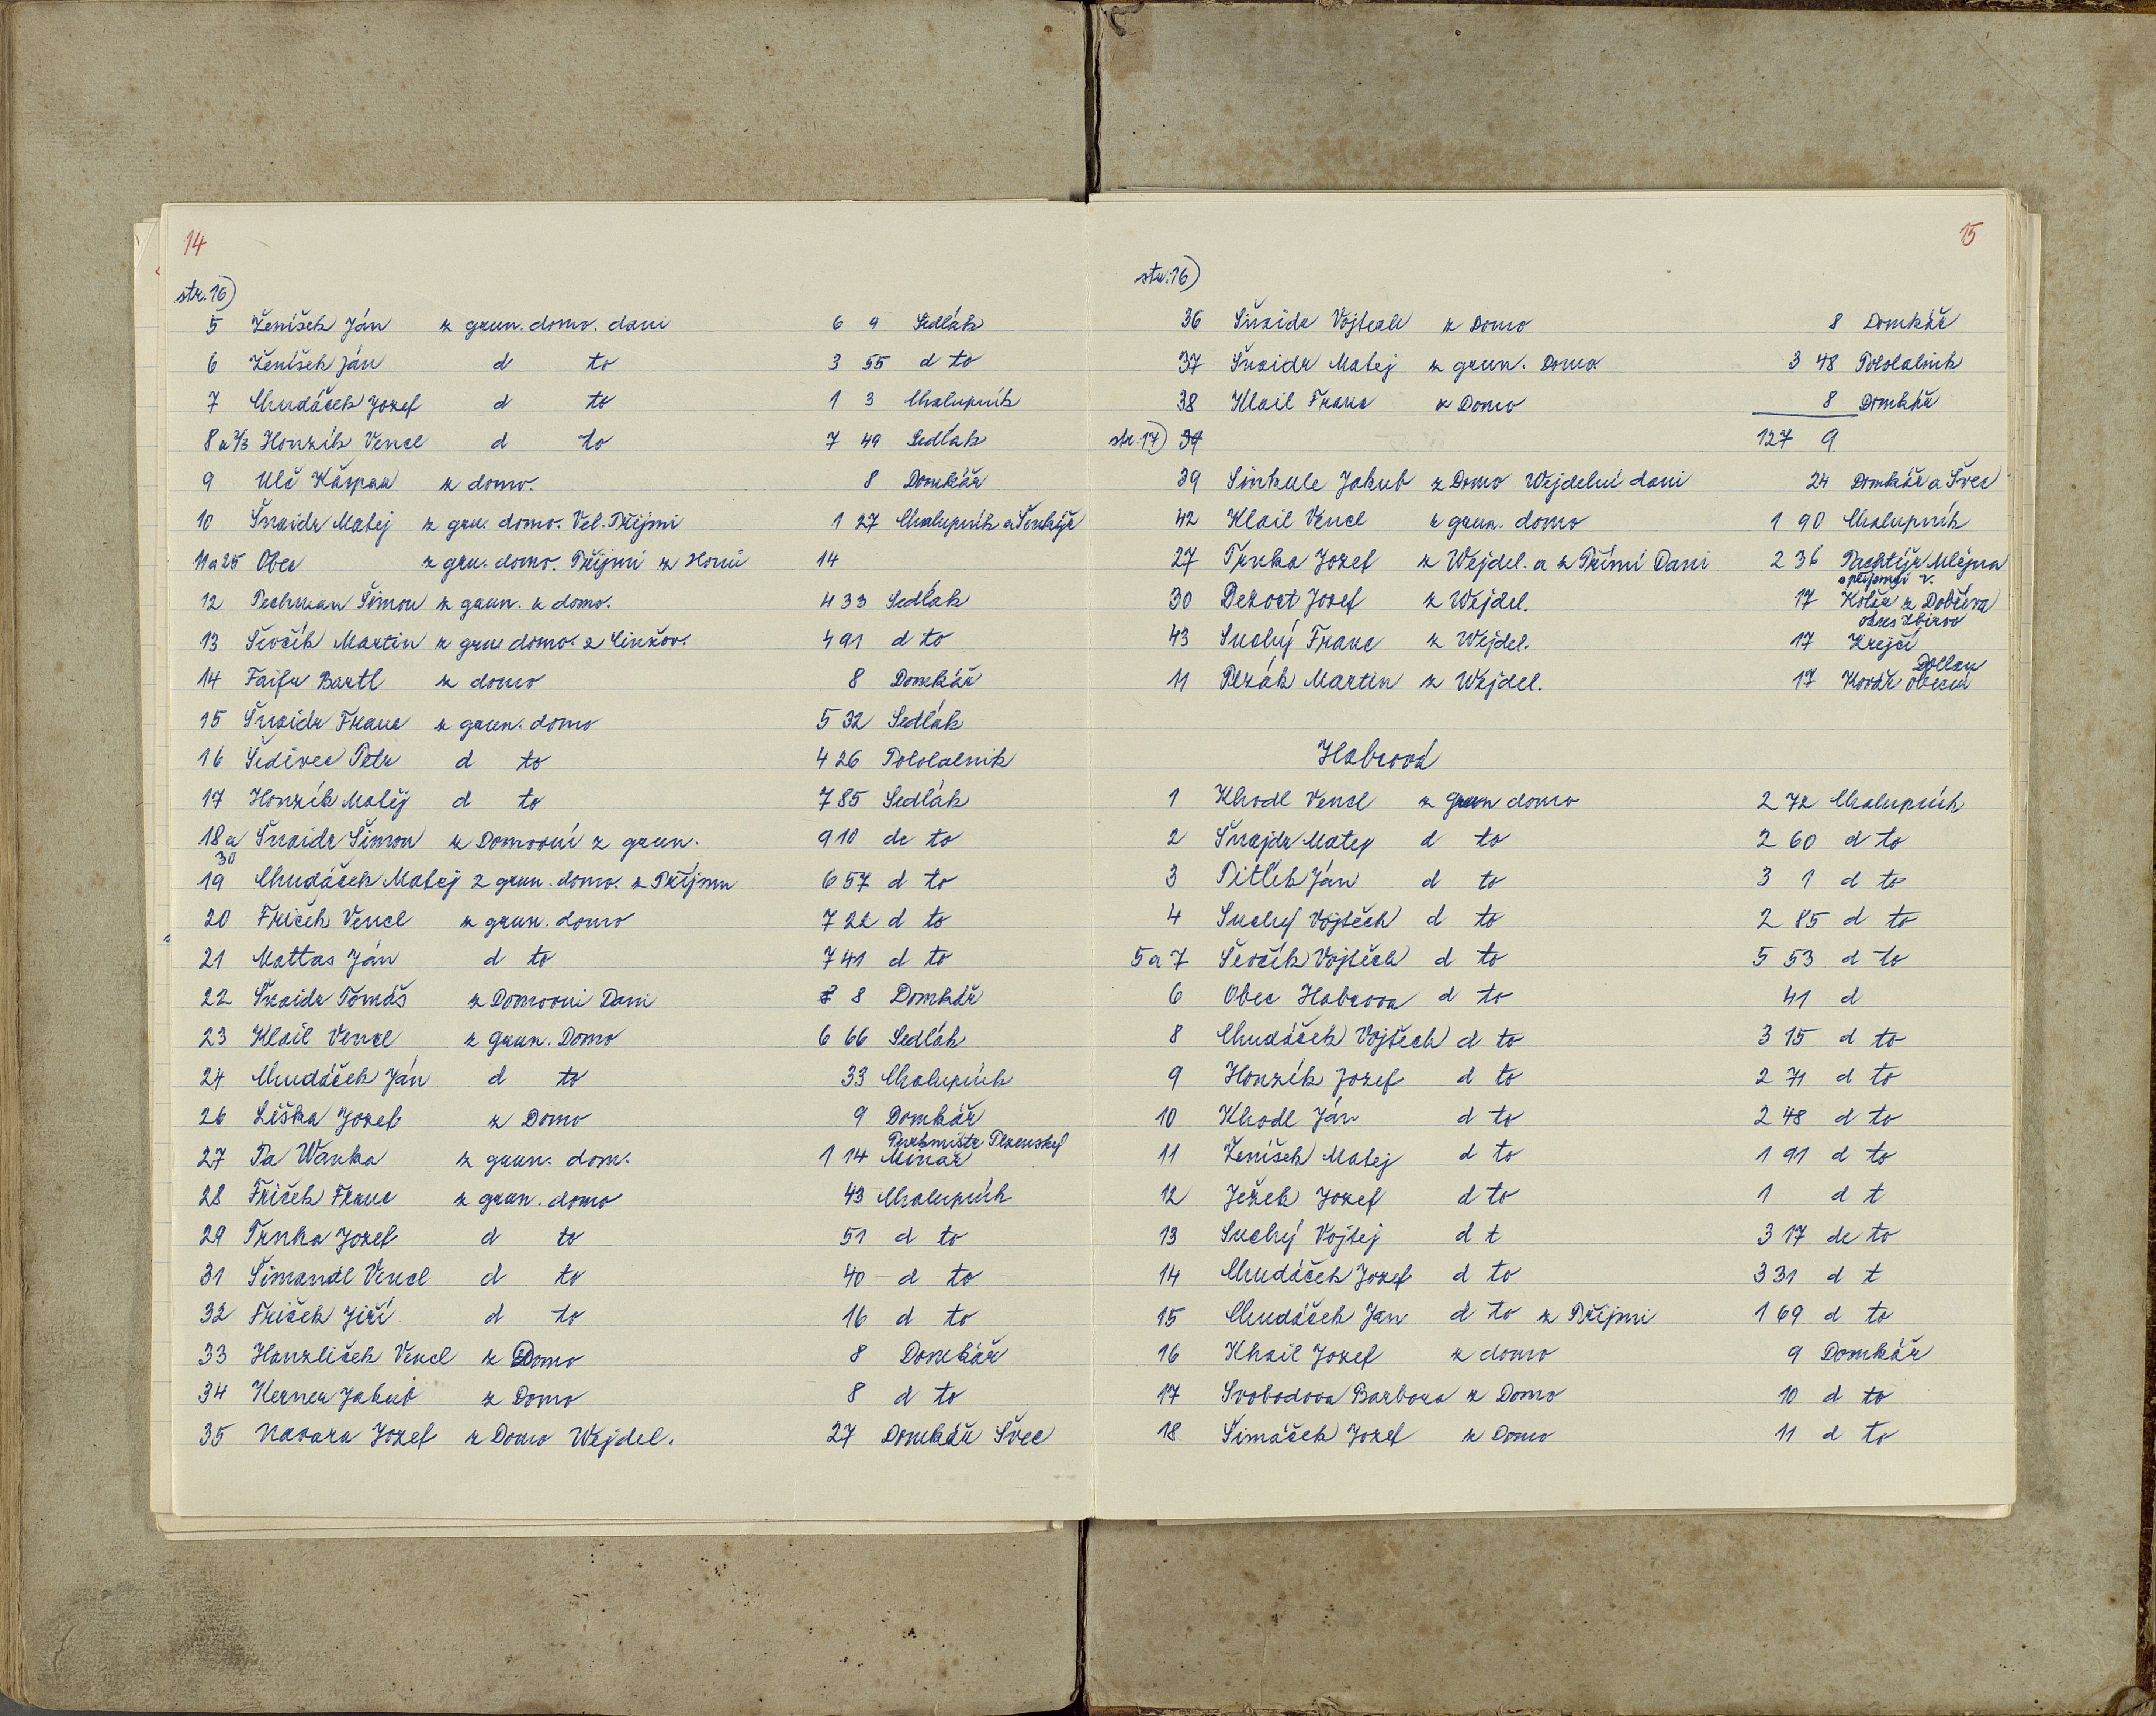 14
str. 16)
5 Ženíšek Ján z grun. domo. dani 6 9 Sedlák
6 Ženíšek Ján d to 3 55 d to
7 Chudáček Jozef d to 1 3 Chalupník
8 a 1/3 Honzík Vencl d to 7 49 Sedlák
9 Ulč Kašpar z domo. 8 Domkář
10 Šnaidr Matej z gru. domo. Vel. Přijmi 1 27 Chalupník a Šenkýř
11 a 25 Obec z gru. domo. Přijmi z Honů 14
12 Pechman Šimon z grun. z domo. 4 33 Sedlák
13 Ševčík Martin z grun domo. z Činžov. 4 91 d to
14 Faifr Bartl z domo 8 Domkář
15 Šnaidr Franc z grun. domo 5 32 Sedlák
16 Šedivec Petr d to 4 26 Pololalnik
17 Honzík Matěj d to 7 85 Sedlák
18 a 30 Šnaidr Šimon z Domovní z grun. 9 10 de to
19 Chudáček Matej z grun. domo. z Přijmu 6 57 d to
20 Friček Vencl z grun. domo 7 22 d to
21 Mattas Ján d to 7 41 d to
22 Šnaidr Tomáš z Domovni Dani 8 Domkář
23 Klail Vencl z grun. Domo 6 66 Sedlák
24 Chudáček Ján d to 33 Chalupník
26 Liška Jozef z Domo 9 Domkář
Purkmistr Plzenskej
27 Pa Wanka z grun. dom. 1 14 Minař
28 Friček Franc z grun. domo 43 Chalupník
29 Trnka Jozef d to 51 d to
31 Šimandl Vencl d to 40 d to
32 Friček Jiří d to 16 d to
33 Hanzliček Vencl z Domo 8 Domkář
34 Kerner Jakub z Domo 8 d to
35 Navara Jozef z Domo Wejdel. 27 Domkář Švec
15
str. 16)
36 Šnaidr Vojtech z Domo 8 Domkář
37 Šnaidr Matej z grun. Domo 3 48 Pololalnik
38 Klail Franc z Domo 8 Domkář
str. 17) 39 127 9
39 Sintrule Jakub z Domo Wejdelní dani 24 Domkář a Švec
42 Klail Vencl z grun. domo 1 90 Chalupník
27 Trnka Jozef z Wejdel. a z Přími Dani 2 36 Pachtýř Mlejna
30 Dezort Jozef z Wejdel. 17 Kolář z Dobřeva
okres Zbirov
43 Suchý Franc z Wejdel. 17 Krejčí
11 Plzák Martin z Wejdel. 17 Kovář obecní
Habrová
1 Khodl Vencl z grun domo 2 72 Chalupník
2 Šnajdr Matej d to 2 60 d to
3 Pitlík Ján d to 3 1 d to
4 Suchej Vojtěch d to 2 85 d to
5 a 7 Ševčík Vojtěch d to 5 53 d to
6 Obec Habrova d to 41 d
8 Chudáček Vojtěch d to 3 15 d to
9 Honzík Jozef d to 2 71 d to
10 Khodl Ján d to 2 48 d to
11 Ženíšek Matej d to 1 91 d to
12 Ježek Jozef d to 1 d t
13 Suchý Vojtej d t 3 17 de to
14 Chudáček Jozef d to 3 31 d t
15 Chudáček Jan d to z Přijmi 1 69 d to
16 Khail Jozef z domo 9 Domkář
17 Svobodova Barbora z Domo 10 d to
18 Šimáček Jozef z Domo 11 d to